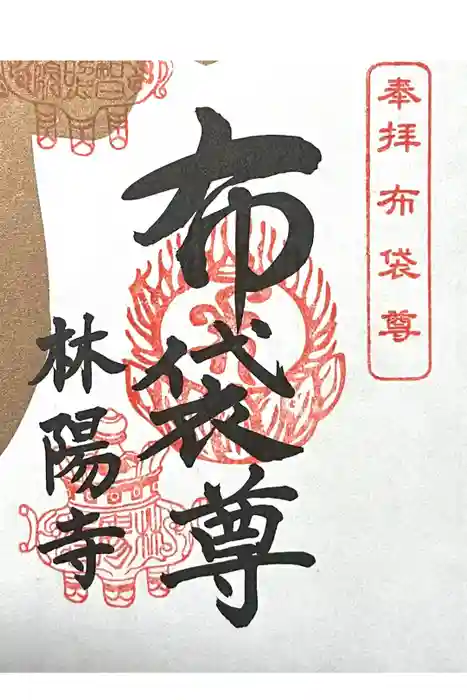 奉拝 布袋尊
布袋尊
林陽寺